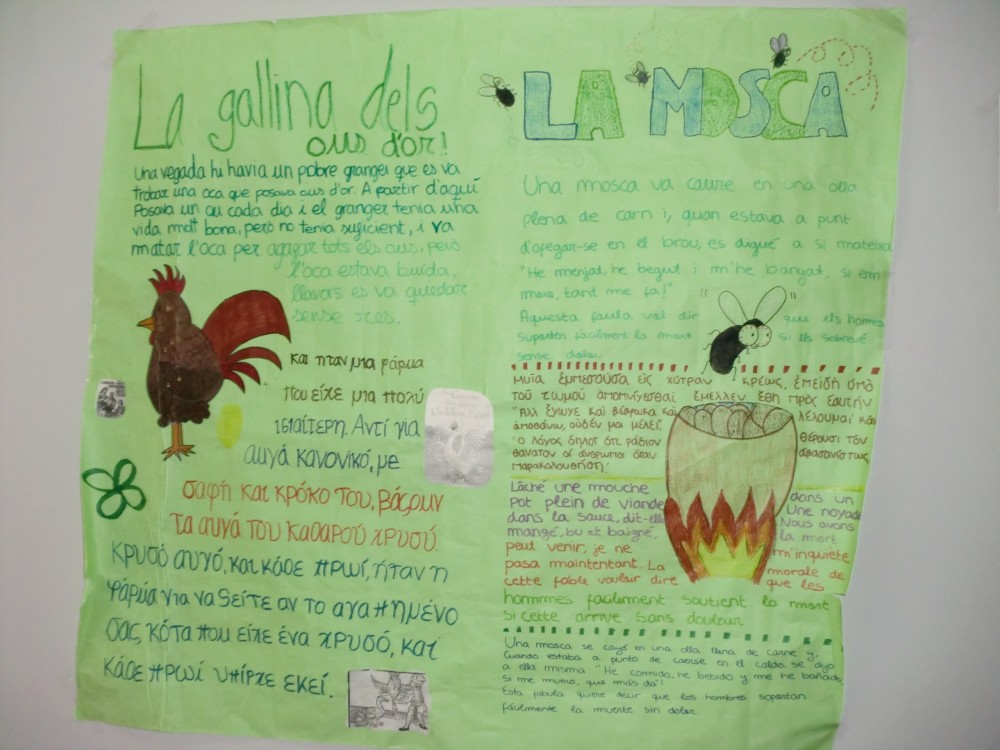 La gallina dels
ous d'or!
Una vegada hi havia un pobre granger que es va
trobar una oca que posava ous d'or. A partir d'aquí
Posava un ou cada dia i el granger tenia una
vida molt bona, però no tenia suficient, i va
matar l'oca per agafar tots els ous, però
l'oca estava buida,
llavors es va quedar
sense res.
και ήταν μια φάρμα
που είχε μια πολύ
ιδιαίτερη. Αντί για
αυγά κανονικό, με
σαφή και κρόκο του, βάζουν
τα αυγά του καθαρού χρυσύ.
κρυσό αυγό, και κάθε πρωί, ήταν η
φάρμα για να δείτε αν το αγαπημένο
σας, κότα που είχε ένα χρυσό, και
κάθε πρωί υπίρχε εκεί.
Golden Eggs
LA MOSCA
Una mosca va caure en una olla
plena de carn i, quan estava a punt
d'ofegar-se en el brou, es digué a si mateixa
"He menjat, he begut i m'he banyat, si em
mor, tant me fa!"
Aquesta faula vol dir que els homes
suporten fàcilment la mort si els sobrevé
sense dolor.
Μυῖα ἐμπεσοῦσα εἰς χύτραν κρέως, ἐπειδὴ ὑπὸ
τοῦ ζωμοῦ ἀποπνίγεσθαι ἔμελλεν ἔφη πρὸς ἑαυτήν
"Ἀλλ' ἔγωγε καὶ βέβρωκα καὶ λέλουμαι κἂν
ἀποθάνω, οὐδέν μοι μέλει".
Ὁ λόγος δηλοῖ ὅτι ῥᾴδιον θέρουσι τὸν
θάνατον οἱ ἄνθρωποι ὅταν ἀβασανίστως
παρακολουθήσῃ.
Lâché une mouche dans un
pot plein de viande Une noyade
dans la sauce, dit-elle Nous avons
mangé, bu et baigné, la mort
peut venir, je ne m'inquiète
pasa maintentant. La morale de
cette fable vouloir dire que les
hommes facilement soutient la mort
si cette arrive sans douleur
Una mosca se cayó en una olla llena de carne y,
Cuando estaba a punto de caerse en el caldo se dijo
a ella misma "He comido, he bebido y me he bañado,
si me muero, que más da"!
Esta fabula quiere decir que los hombres soportan
fácilmente la muerte sin dolor.